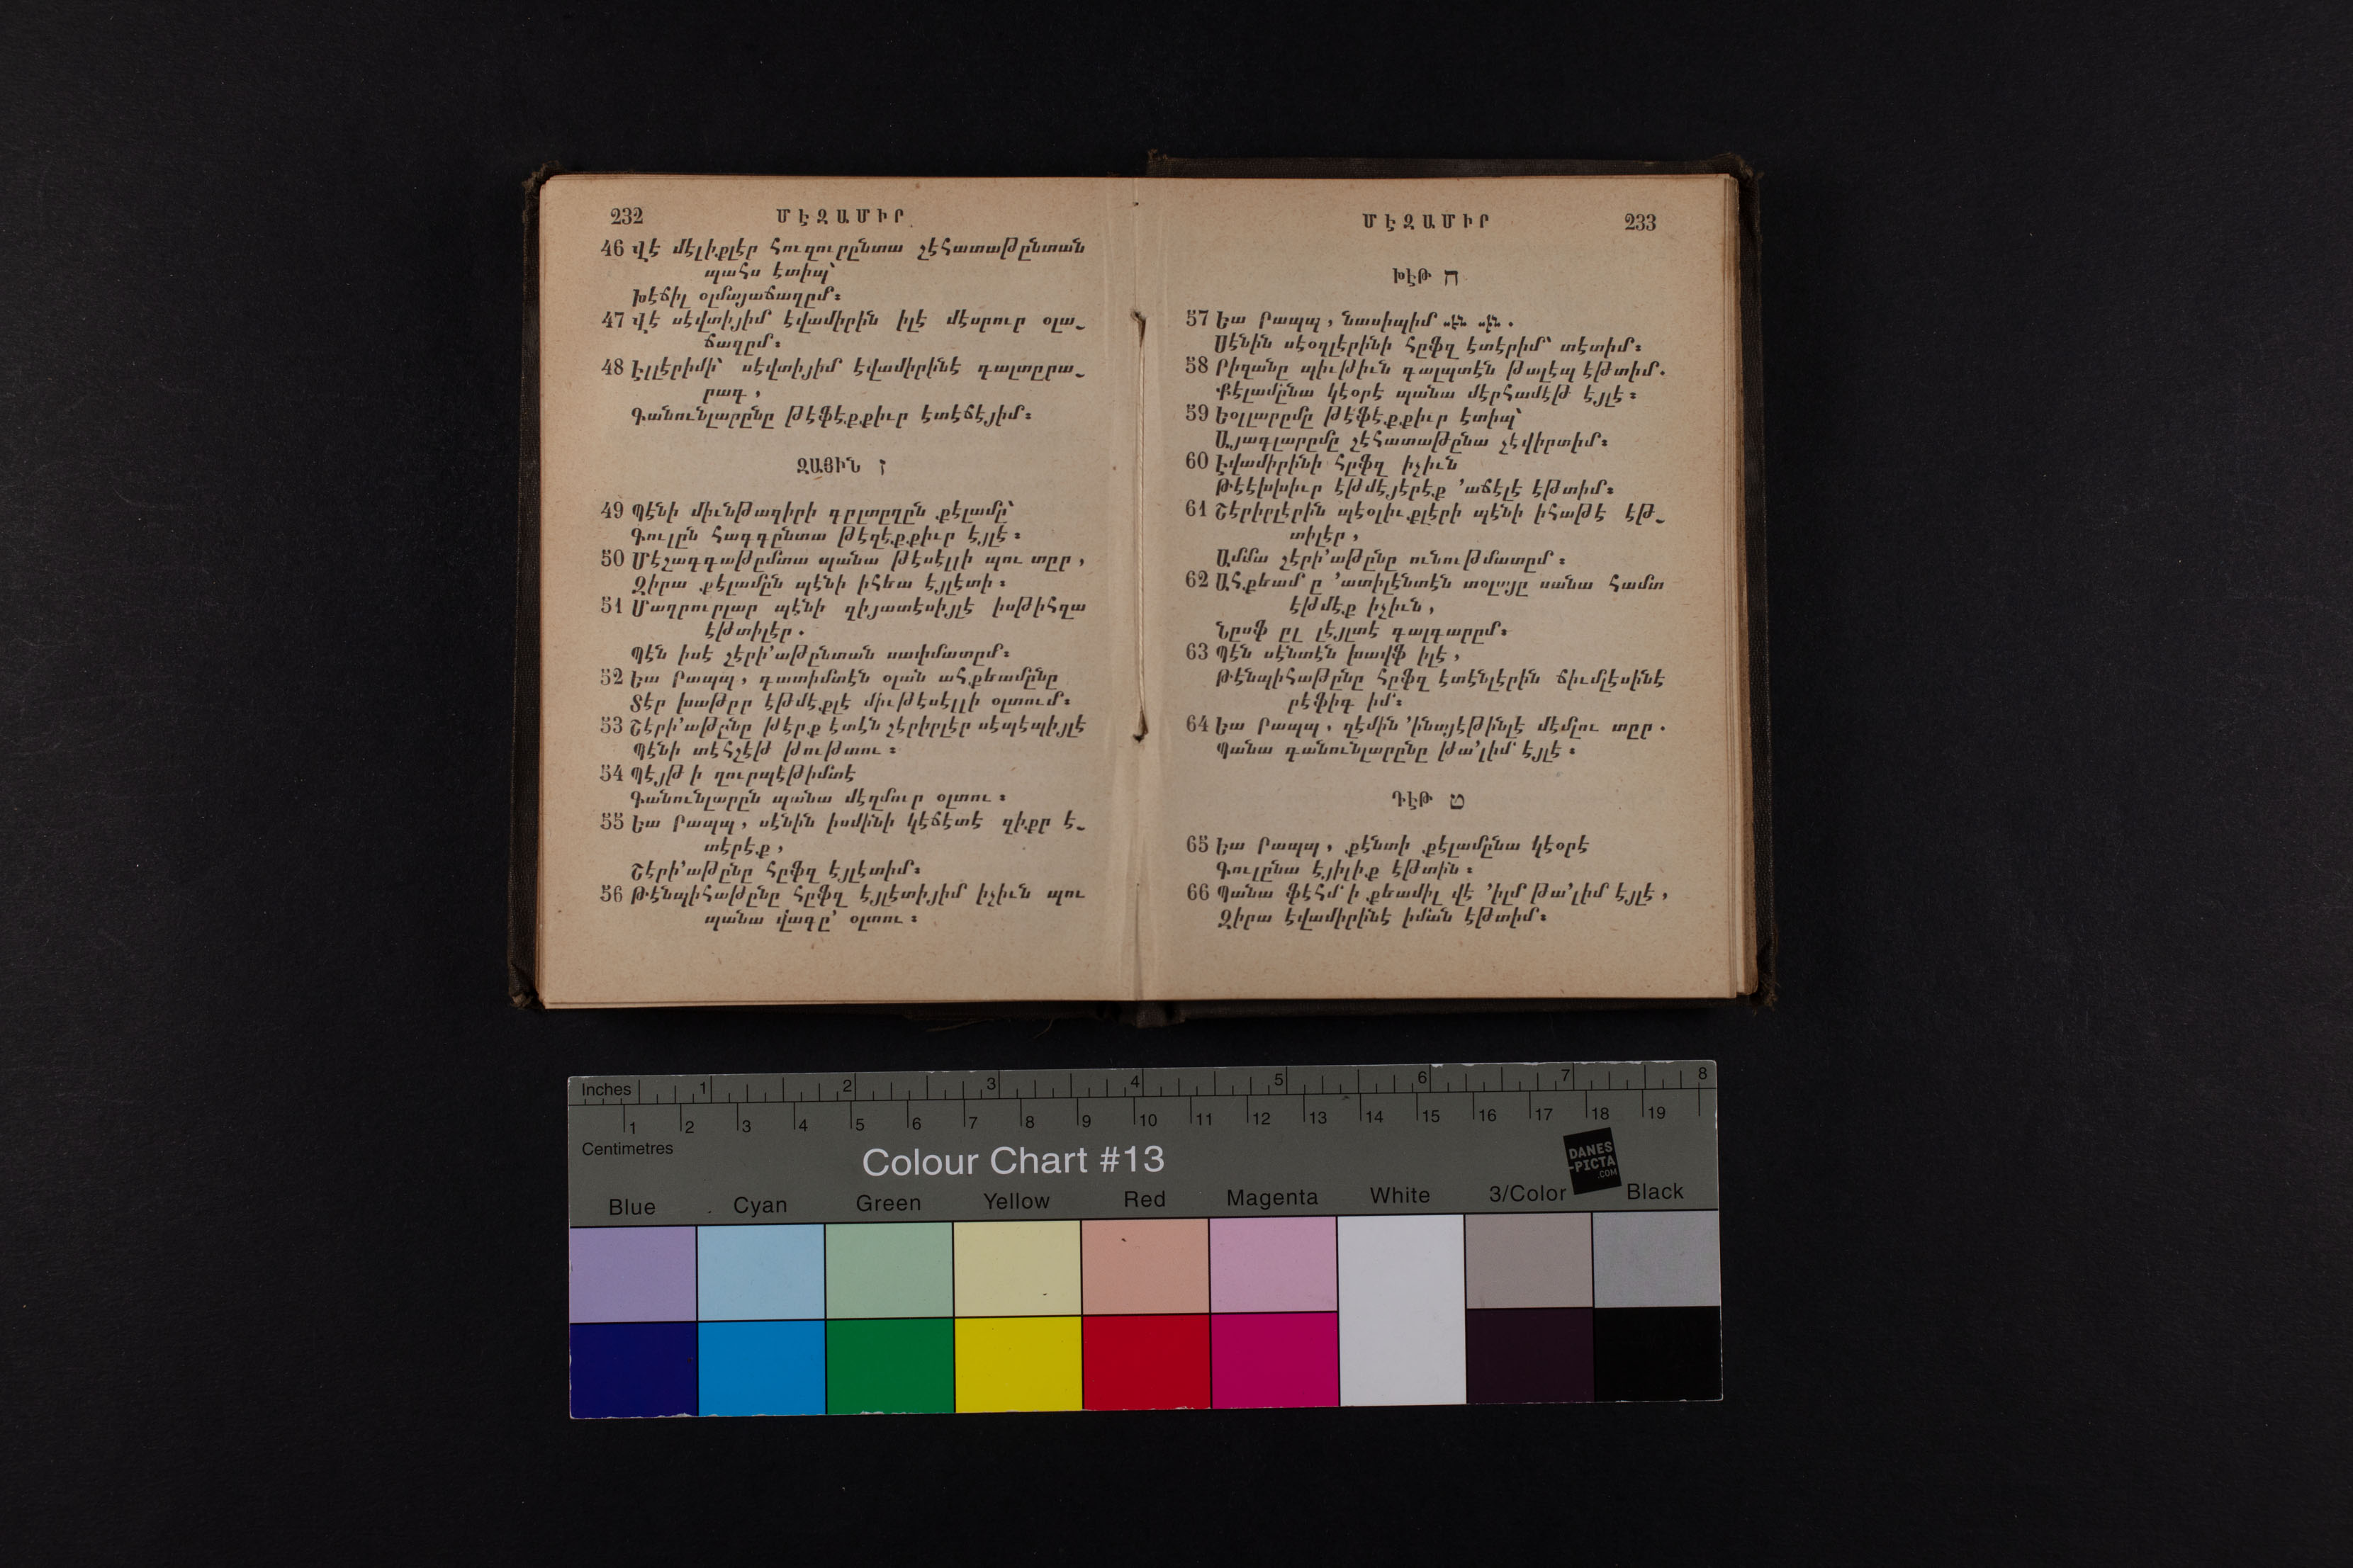 232 ՄԷԶԱՄԻՐ
46 Վէ մէլիքլէր հուզուրընտա շէհատաթընտան
պահս էտիպ՝
Խէճիլ օլմայաճաղըմ։
47 Վէ սէվտիյիմ էվամիրին իլէ մէսրուր օլա֊
ճաղըմ։
48 Էլլէրիմի՝ սէվտիյիմ էվամիրինէ գալտըրա֊
րագ,
Գանունլարընը թէֆէքքիւր էտէճէյիմ։
ԶԱՅԻՆ ז
49 Պէնի միւնթազիրի գըլտըղըն քէլամը՝
Գուլըն հագգընտա թէզէքքիւր էյլէ։
50 Մէշագգաթըմտա պանա թէսէլլի պու տըր,
Զիրա քէլամըն պէնի իհեա էյլէտի։
51 Մաղրուրլար պէնի զիյատէսիյլէ իսթիհզա
էթտիլէր.
Պէն իսէ շէրի՚աթընտան սափմատըմ։
52 Եա Րապպ, գատիմտէն օլան ահքեամընը
Տէր խաթըր էթմէքլէ միւթէսէլլի օլտում։
53 Շէրի՚աթընը թէրք էտէն շէրիրլէր սէպէպիյլէ
Պէնի տէհշէթ թութտու։
54 Պէյթ ի ղուրպէթիմտէ
Գանունլարըն պանա մէզմուր օլտու։
55 Եա Րապպ, սէնին իսմինի կէճէտէ զիքր է֊
տէրէք,
Շէրի՚աթընը հըֆզ էյլէտիմ։
56 Թէնպիհաթընը հըֆզ էյլէտիյիմ իչիւն պու
պանա վագը՚ օլտու։
ՄԷԶԱՄԻՐ 233
ԽԷԹ ח
57 Եա Րապպ, նասիպիմ սէն սին.
Սէնին սէօզլէրինի հըֆզ էտէրիմ՝ տէտիմ։
58 Րիզանը պիւթիւն գալպտէն թալէպ էթտիմ.
Քէլամընա կէօրէ պանա մէրհամէթ էյլէ։
59 Եօլլարըմը թէֆէքքիւր էտիպ՝
Այագլարըմը շէհատաթընա չէվիրտիմ։
60 Էվամիրինի հըֆզ իչիւն
Թէէխխիւր էթմէյէրէք ՚աճէլէ էթտիմ։
61 Շէրիրլէրին պէօլիւքլէրի պէնի իհաթէ էթ֊
տիլէր,
Ամմա շէրի՚աթընը ունութմատըմ։
62 Ահքեամ ը ՚ատիլէնտէն տօլայը սանա համտ
էթմէք իչիւն,
Նըսֆ ըլ լէյլտէ գալգարըմ։
63 Պէն սէնտէն խավֆ իլէ,
Թէնպիհաթընը հըֆզ էտէնլէրին ճիւմլէսինէ
րէֆիգ իմ։
64 Եա Րապպ, զէմին ՚ինայէթինլէ մէմլու տըր.
Պանա գանունլարընը թա՚լիմ էյլէ։
ԴԷԹ ט
65 Եա Րապպ, քէնտի քէլամընա կէօրէ
Գուլընա էյիլիք էթտին։
66 Պանա ֆէհմ ի քեամիլ վէ ՚իլմ թա՚լիմ էյլէ,
Զիրա էվամիրինէ իման էթտիմ։
Inches 1 2 3 4 5 6 7 8
1 2 3 4 5 6 7 8 9 10 11 12 13 14 15 16 17 18 19
Centimetres
Colour Chart #13
DANES
-PICTA
.COM
Blue Cyan Green Yellow Red Magenta White 3/Color Black